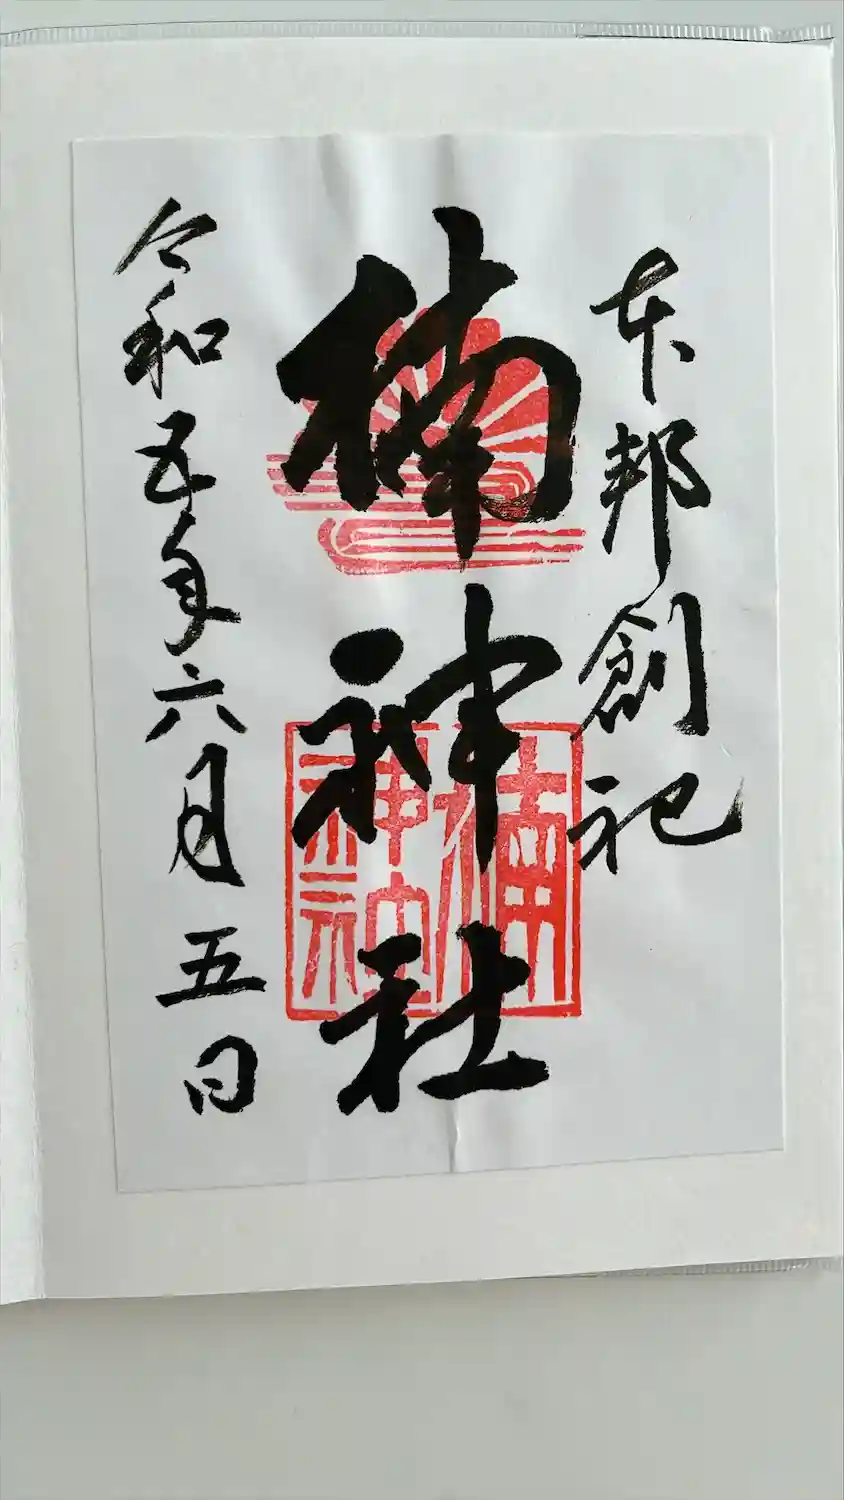 本邦創祀
楠神社
楠
神社
令和五年六月五日